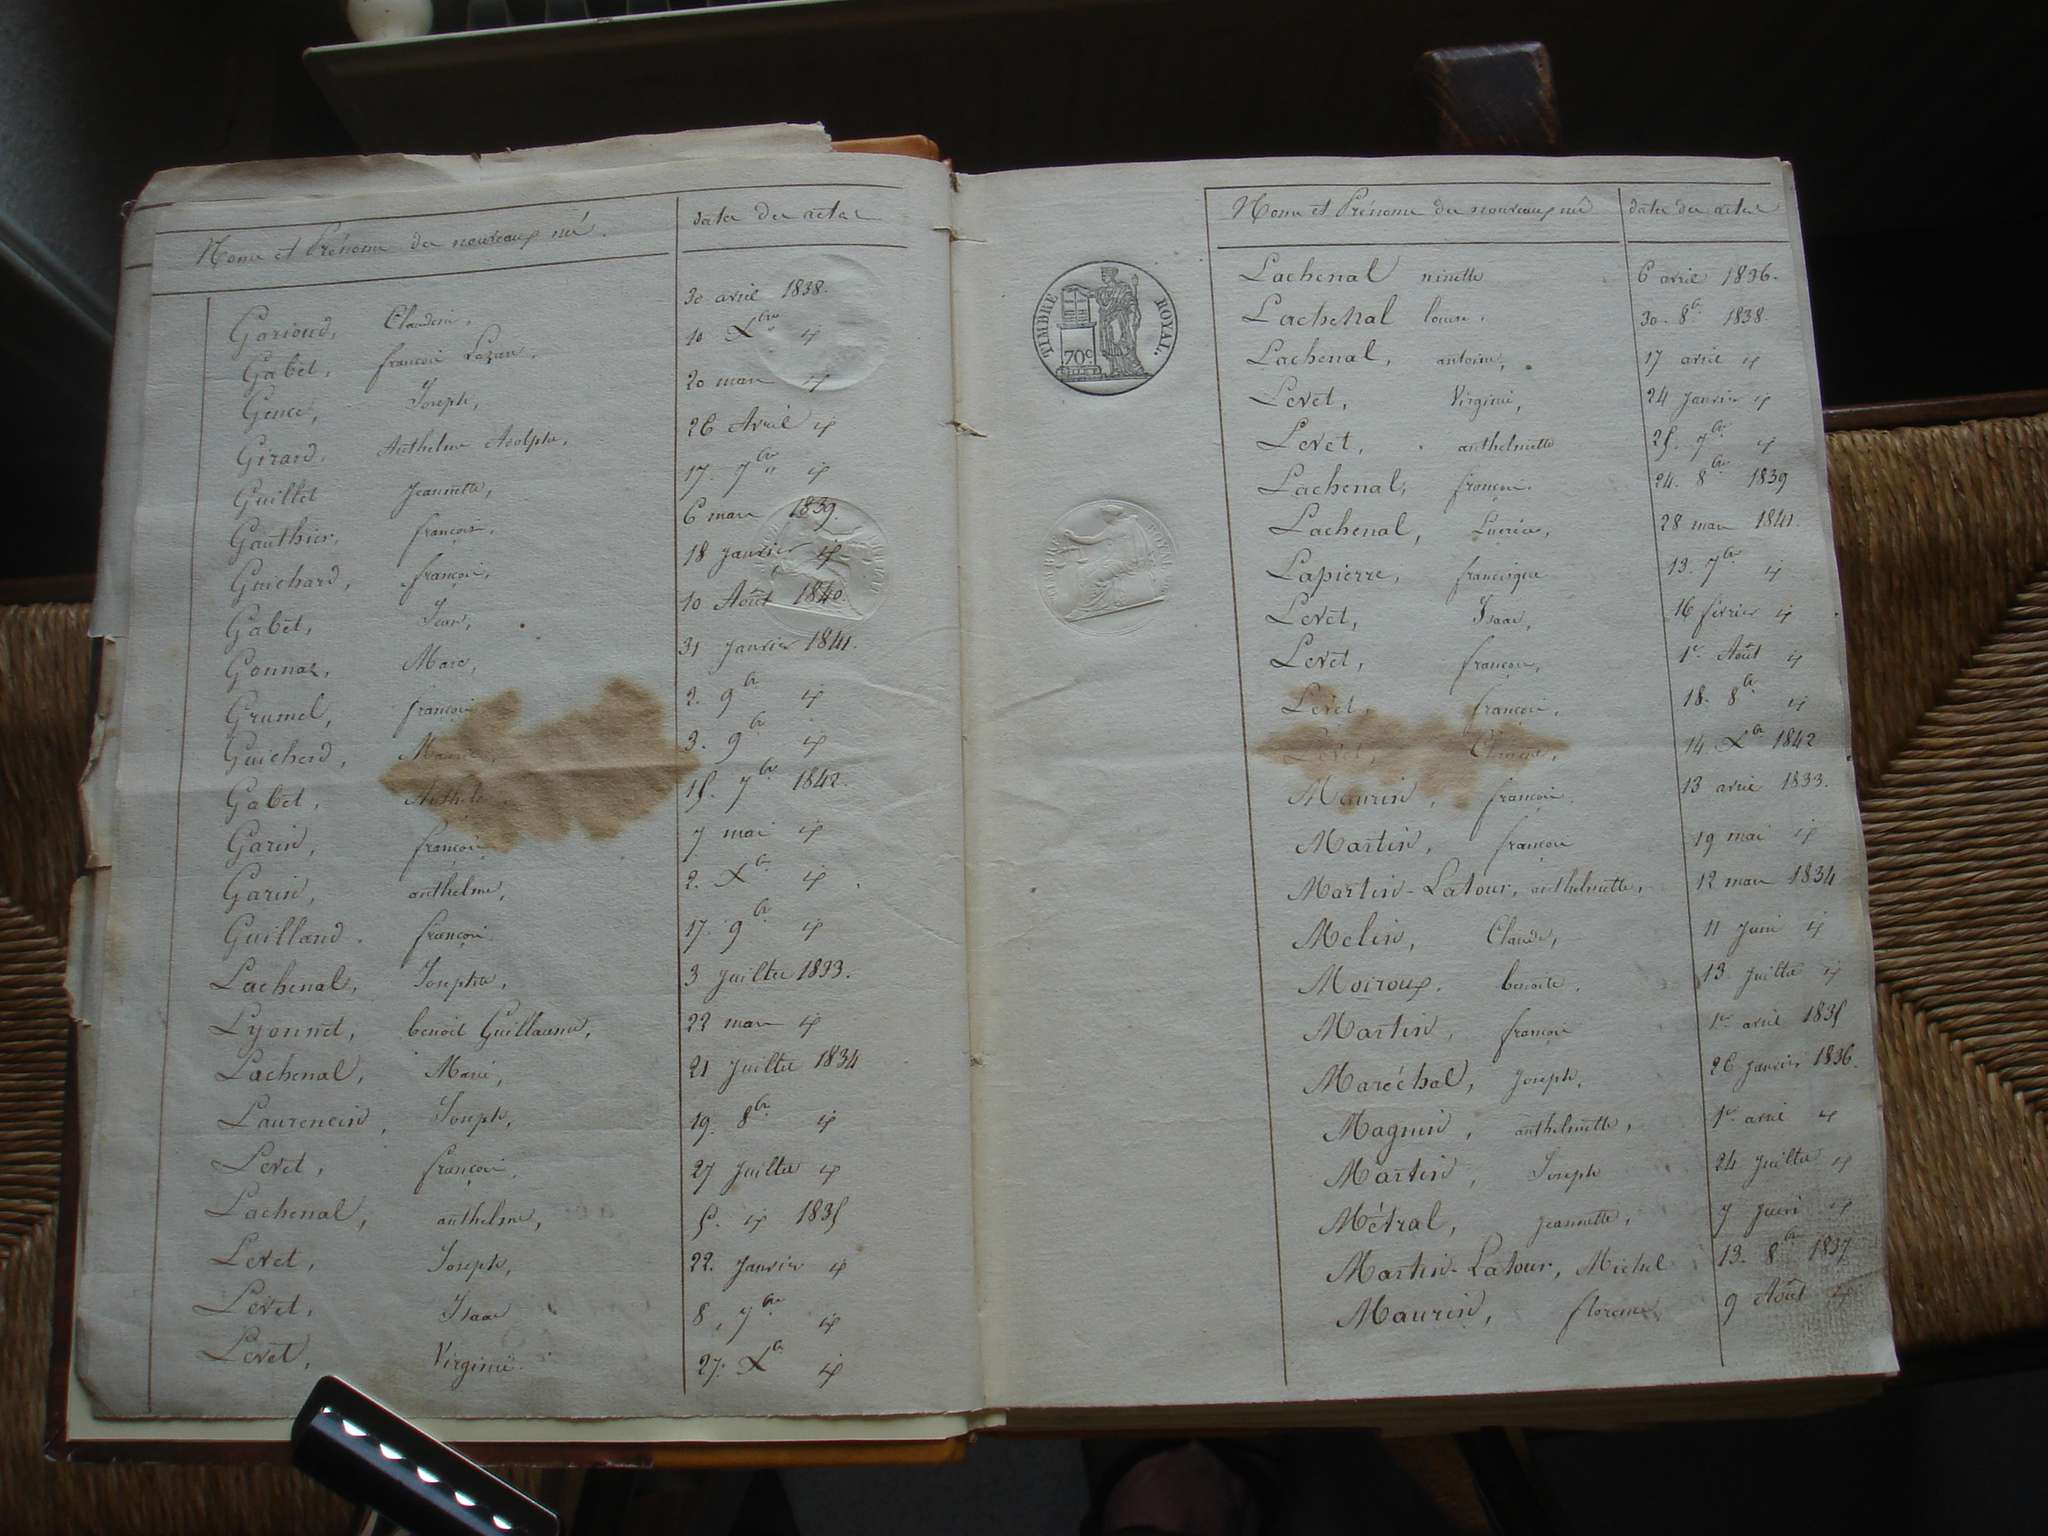 Noms et Prénoms des nouveaux nés. dates des actes
Goriond, Claudine, 30 avril 1838.
Gabet, françois 10 Xbre id
Gence, Joseph, 20 mars id
Girard, Anthelme Adolphe, 26 Avril id
Guillet Jeannette, 17. 7bre id
Gauthier, françois, 6 mars 1839.
Guichard, françois, 18 Janvier id
Gabet, Jean, 10 Août 1840.
Gonnaz, Marc, 31 Janvier 1841.
Grumel, françois 2. 9bre id
Guicherd, 3. 9bre id
Gabet, 15. 7bre 1842.
Garin, françois 7 mai id
Garin, anthelme, 2. Xbre id
Guilland. françois 17. 9bre id
Lachenal, Josephte, 3 Juillet 1833.
Lyonnet, benoit Guillaume, 22 mars id
Lachenal, Marie, 21 Juillet 1834
Laurencin, Joseph, 19. 8bre id
Levet, françois 27 Juillet id
Lachenal, anthelme, 5. id 1835
Levet, Joseph, 22. Janvier id
Levet, Isaac 8, 7bre id
Levet, Virginie. 27. Xbre id
TIMBRE ROYAL.
70c
Noms et Prénoms des nouveaux nés dates des actes
Lachenal ninette 6 avril 1836.
Lachenal louise, 30. 8bre 1838.
Lachenal, antoine, 17 avril id
Levet, Virginie, 24 Janvier id
Levet, anthelmette 25. 7bre id
Lachenal, françois. 24. 8bre 1839
Lachenal, Lucrèce, 28 mars 1841.
Lapierre, francisque 13. 7bre id
Levet, Isaac, 16 février id
Levet, françois, 1er Août id
Levet, françois, 18. 8bre id
Levet, 14. Xbre 1842
Maurin, françois. 13 avril 1833.
Martin, françois 19 mai id
Martin-Latour, anthelmette, 12 mars 1834
Melin, Claude, 11 Juin id
Moiroux. benoite. 13 Juillet id
Martin, françois 1er avril 1835
Maréchal, Joseph, 26 Janvier 1836.
Magnin, anthelmette, 1er avril id
Martin, Joseph 24 Juillet id
Métral, Jeannette, 7 Juin id
Martin-Latour, Michel 13. 8bre 1837
Maurin, florence 9 Août id